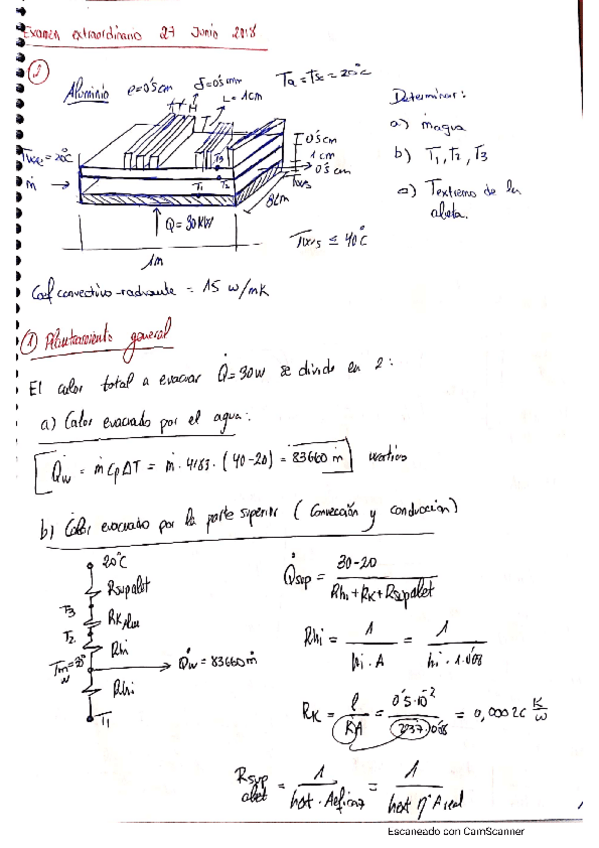 Examen extraordinario 27 Junio 2018
2
Aluminio e=0'5cm δ=0'5mm L=1cm Ta=Tsc=20°C
Determinar:
a) ṁagua
b) T1, T2, T3
c) Textremo de la
aleta.
=20°C
ṁ
T1 T2 T3
0'5cm
1cm
0'5cm
8cm
Q=30kW
1m
≤ 40°C
Coef convectivo-radiante = 15 W/mK
1 Planteamiento general
El calor total a evacuar Q̇=30W se divide en 2:
a) Calor evacuado por el agua:
Q̇w = ṁ Cp ΔT = ṁ·4183·(40-20) = 83660 ṁ vatios
b) Calor evacuado por la parte superior (Convección y conducción)
20°C
Rsupalet
T3
RK Alu
T2
Rhi
Tm=30°
w
Q̇w = 83660 ṁ
Rhi
T1
Q̇sup = 30-20 / Rhi+RK+Rsupalet
Rhi = 1 / hi·A = 1 / hi·1·0'08
RK = e / KA = 0'5·10⁻² / 237·0'08 = 0,00026 K/W
Rsup alet = 1 / hext·Aeficaz = 1 / hext η* Areal
Escaneado con CamScanner